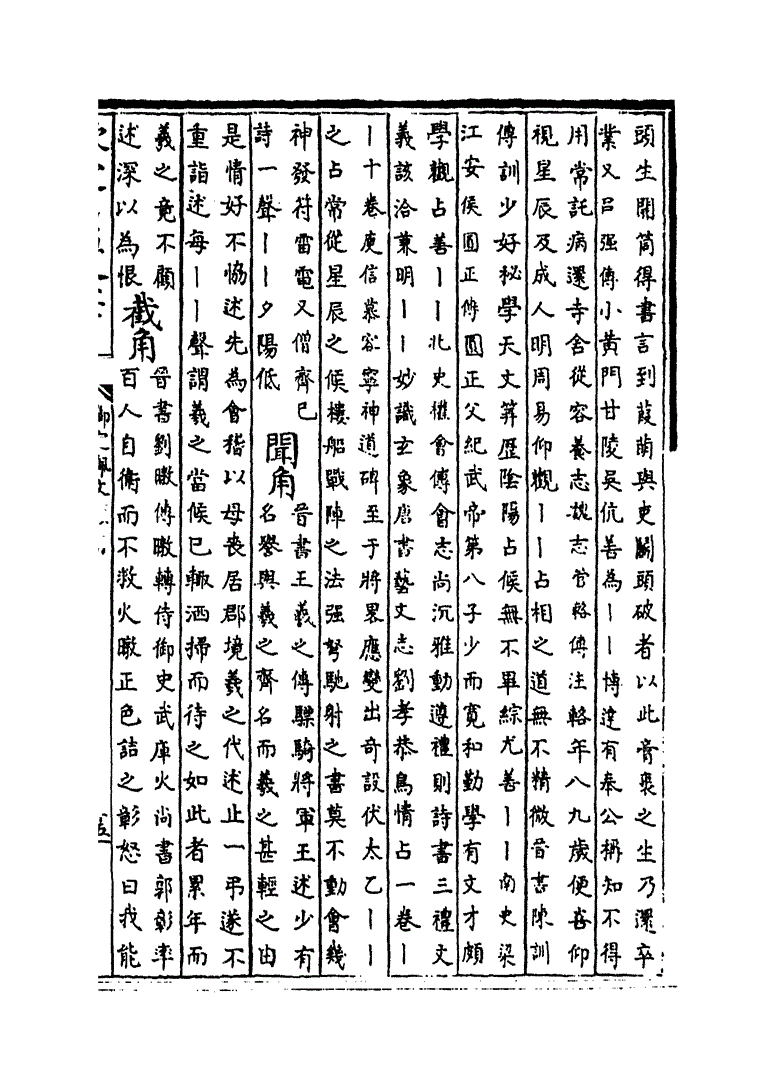 頭生開筒得書言到葭萌與吏鬭頭破者以此膏裹之生乃還卒
業又吕强傳小黄門甘陵吴伉善為丨丨博達有奉公稱知不得
用常託病還寺舍從容養志魏志管輅傳注輅年八九歲便喜仰
視星辰及成人明周易仰觀丨丨占相之道無不精微晉書陳訓
傳訓少好秘學天文筭歴陰陽占候無不畢綜尤善丨丨南史梁
江安侯圓正傳圓正父紀武帝第八子少而寛和勤學有文才頗
學觀占善丨丨北史權會傳會志尚沉雅動遵禮則詩書三禮文
義該洽兼明丨丨妙識玄象唐書藝文志劉孝恭鳥情占一卷丨
丨十卷庾信慕容寧神道碑至于將畧應變出奇設伏太乙丨丨
之占常從星辰之候樓船戰陣之法强弩馳射之書莫不動會幾
神發符雷電又僧齊已
詩一聲丨丨夕陽低
聞角
晉書王羲之傳驃騎將軍王述少有
名譽與羲之齊名而羲之甚輕之由
是情好不協述先為會稽以母喪居郡境羲之代述止一弔遂不
重詣述每丨丨聲謂羲之當候已輒洒掃而待之如此者累年而
羲之竟不顧
述深以為恨
截角
晉書劉暾傳暾轉侍御史武庫火尚書郭彰率
百人自衛而不救火暾正色詰之彰怒曰我能